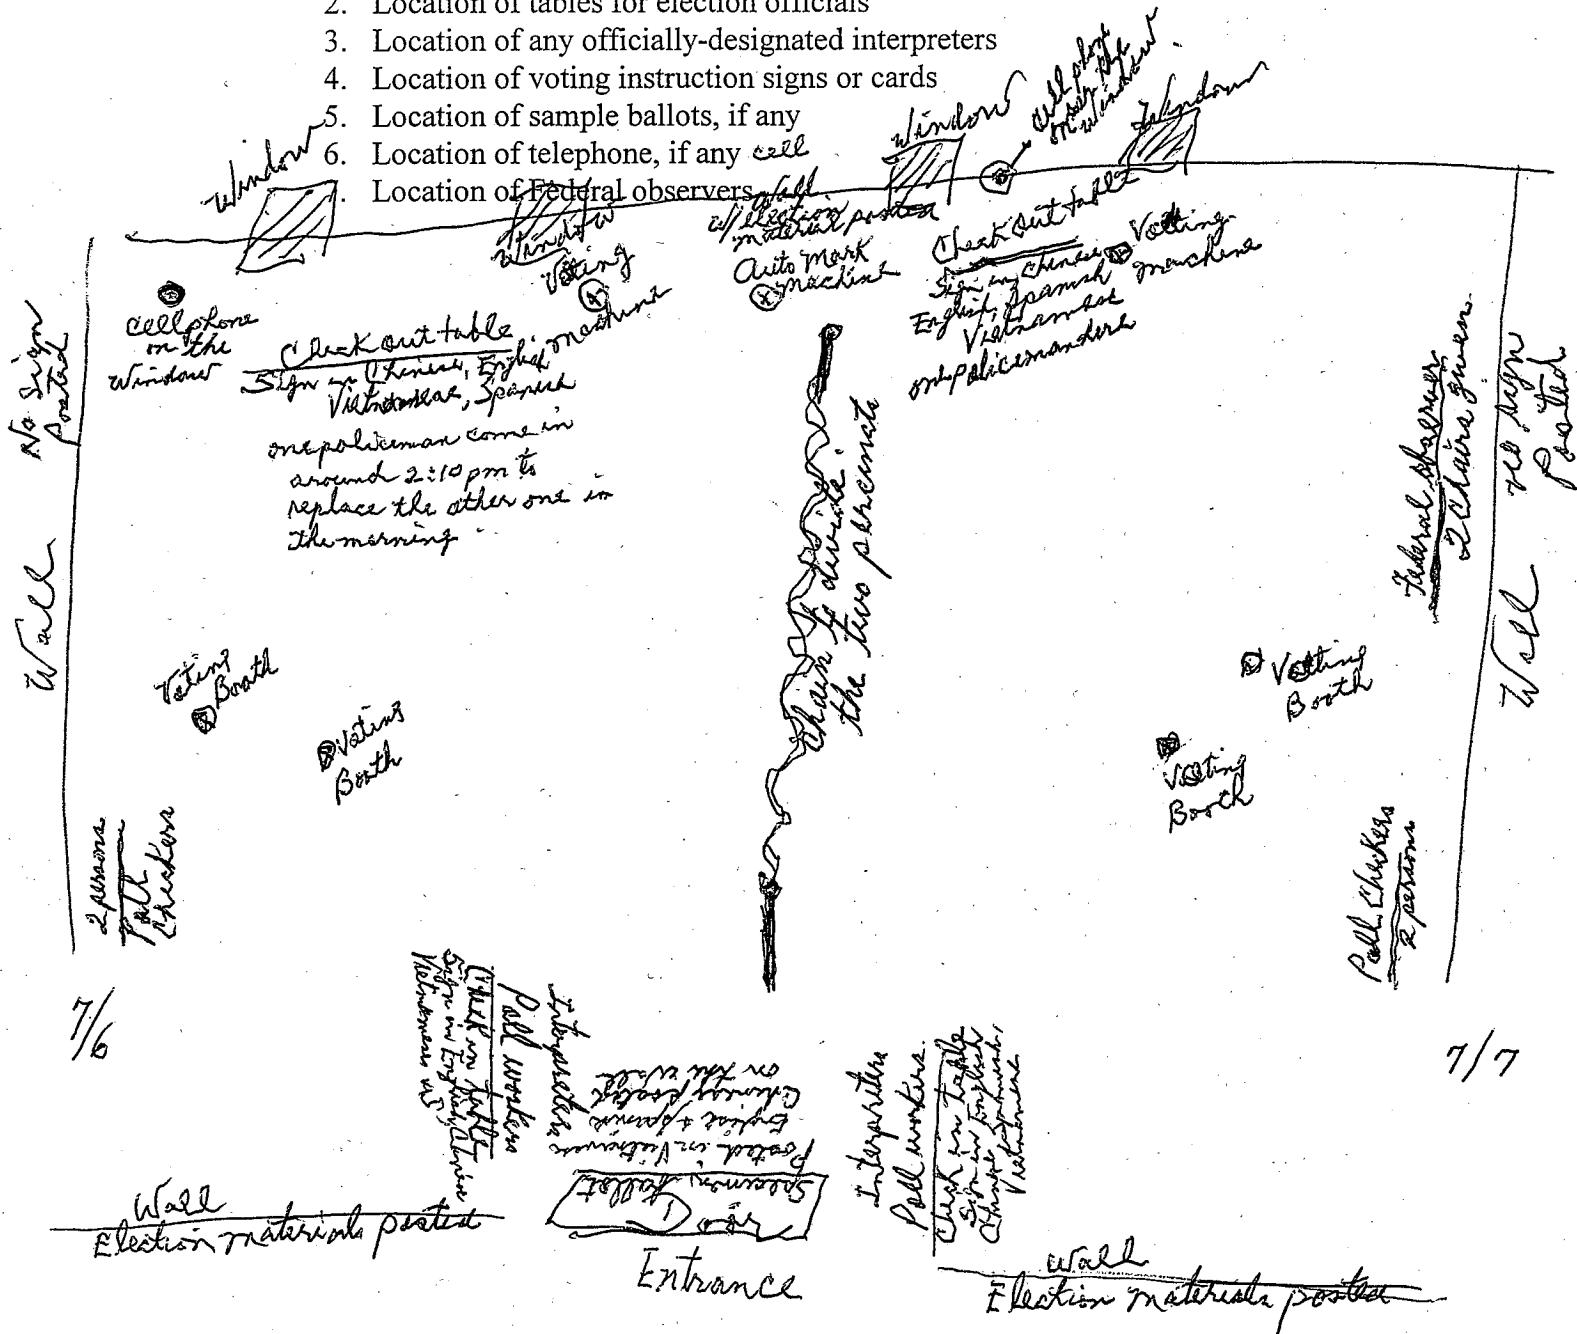 2. Location of tables for election officials
3. Location of any officially-designated interpreters
4. Location of voting instruction signs or cards
5. Location of sample ballots, if any
6. Location of telephone, if any cell
. Location of Federal observers
Window
Window
Window
Window
cell phone
on the
Window
Wall
w/ election
material posted
Auto Mark
machine
Voting
machine
Check out table
Sign in Chinese
English, Spanish
Vietnamese
one policeman here
Voting
machine
cell phone
on the
window
Check out table
Sign in Chinese, English
Vietnamese, Spanish
one policeman come in
around 2:10 pm to
replace the other one in
the morning
No Sign
Posted
Wall
Chain to divide
the two percincts
Federal observer
2 chairs given
no sign
Posted
Wall
Voting
Booth
Voting
Booth
Voting
Booth
Voting
Booth
2 persons
Poll
Checkers
Poll Checkers
2 persons
7/6
7/7
Interpreters
Poll workers
Check in table
Sign in English, Chinese
Vietnamese
Specimen ballot
Posted in Vietnamese
English & Spanish
Chinese posted
on the wall
Interpreters
Poll workers
Check in table
Sign in English
Chinese, Spanish,
Vietnamese
Wall
Election materials posted
Entrance
Wall
Election materials posted